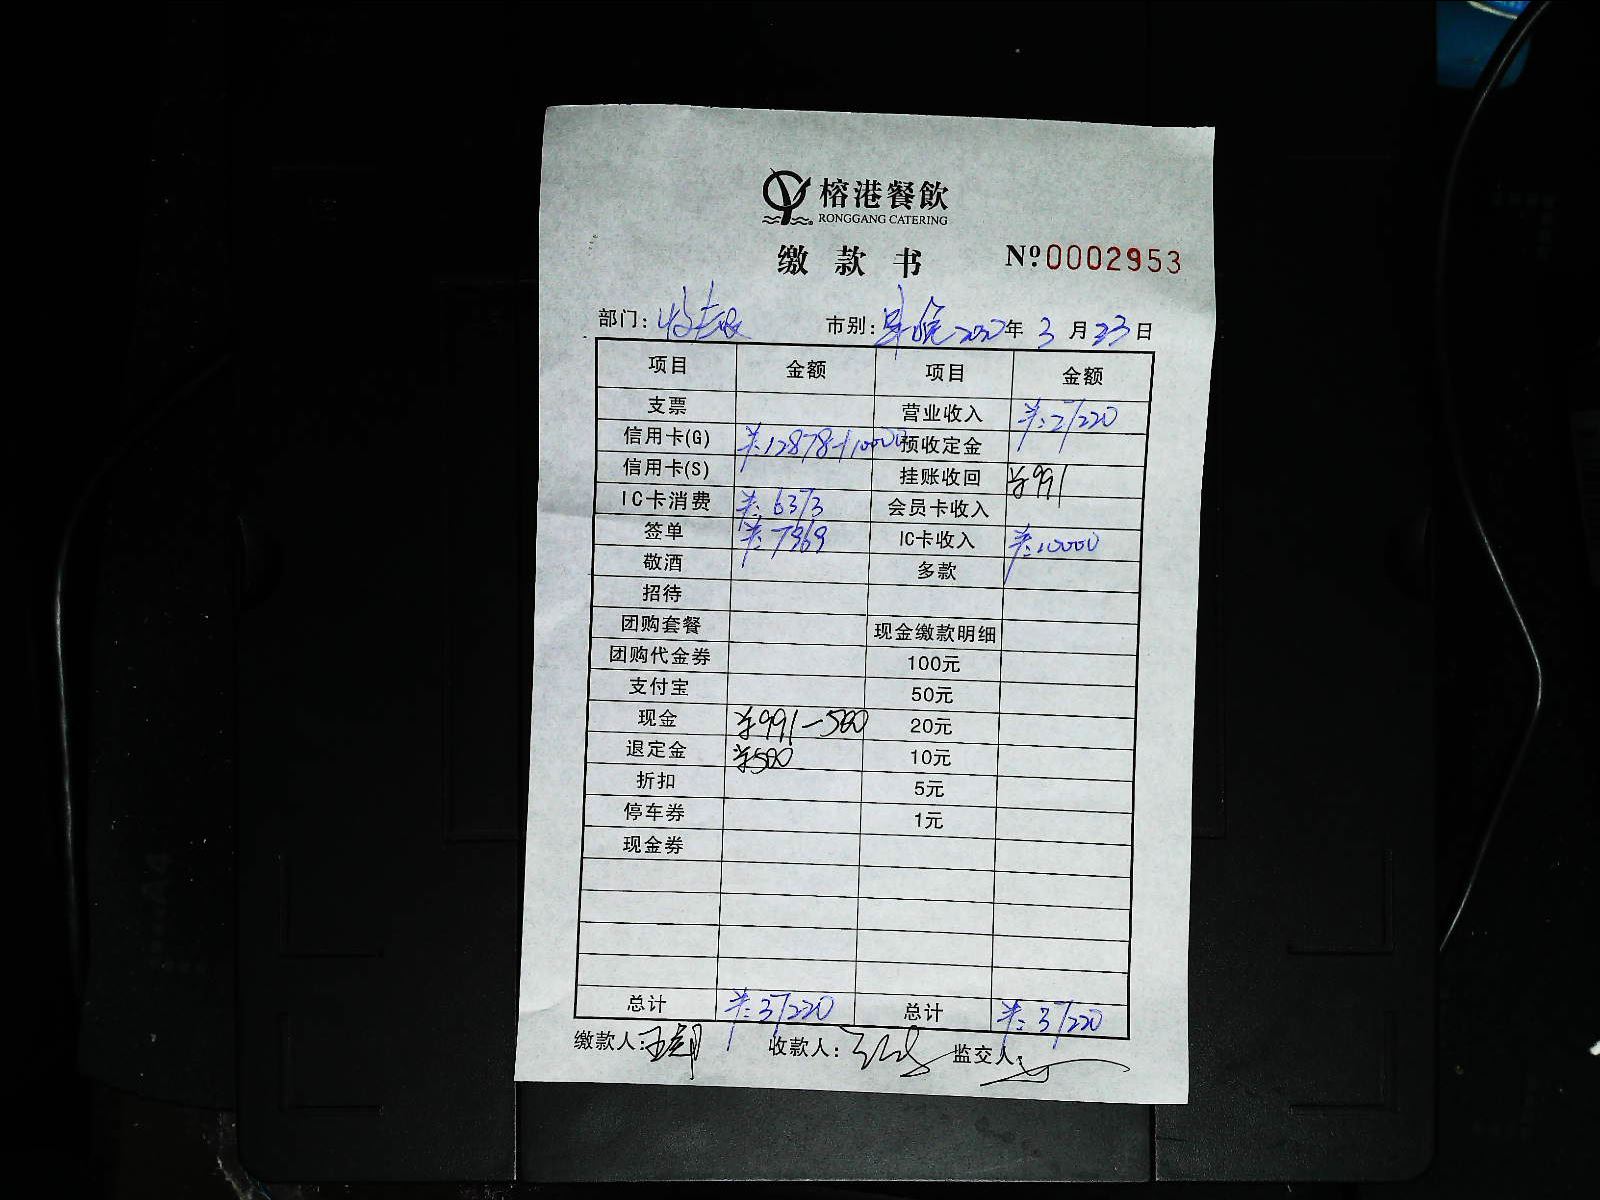 榕港餐飲
RONGGANG CATERING
缴款书 Nº0002953
部门: 市别: 晚 2022年 3月23日
项目 金额 项目 金额
支票 营业收入 ¥:27220
信用卡(G) ¥:12878+10000 预收定金
信用卡(S) 挂账收回 ¥991
IC卡消费 ¥:6373 会员卡收入
签单 ¥:7969 IC卡收入 ¥:10000
敬酒 多款
招待
团购套餐 现金缴款明细
团购代金券 100元
支付宝 50元
现金 ¥991-500 20元
退定金 ¥500 10元
折扣 5元
停车券 1元
现金券
总计 ¥:37220 总计 ¥:37220
缴款人: 收款人: 监交人: